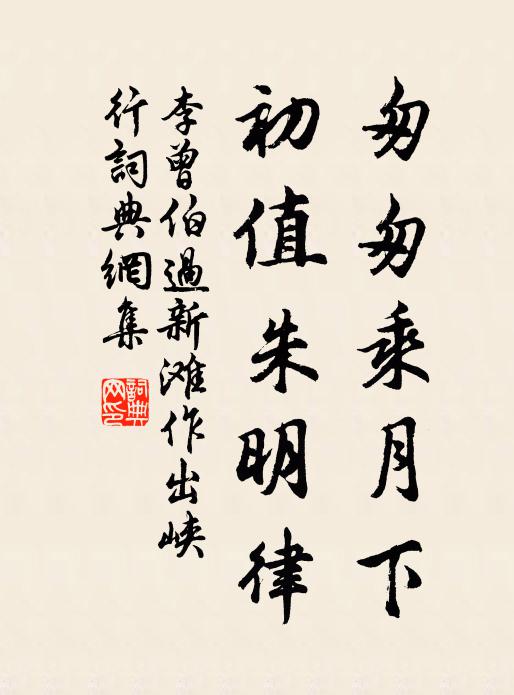 匆匆乘月下
初值朱明律
李曾伯過新滩作出峽
行詞典網集
詞典
网印